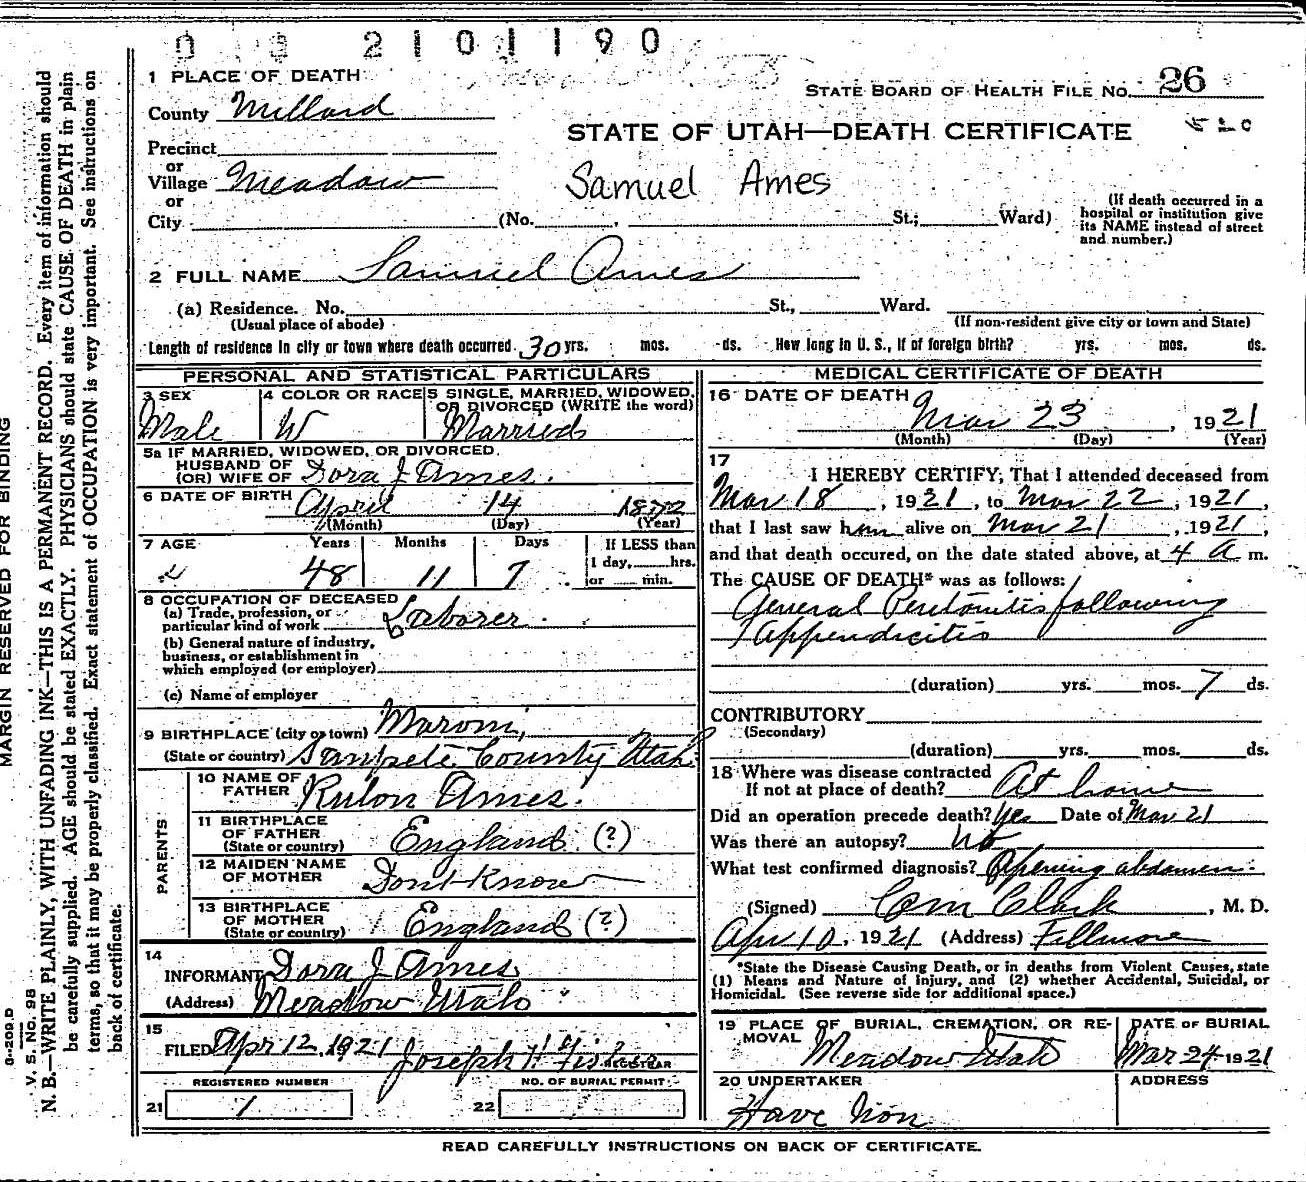 0 3 2 1 0 1 1 9 0
1 PLACE OF DEATH
STATE BOARD OF HEALTH FILE NO. 26
County Millard
STATE OF UTAH—DEATH CERTIFICATE
Precinct
or
Village Meadow
Samuel Ames
or
City (No. , St.; Ward)
(If death occurred in a
hospital or institution give
its NAME instead of street
and number.)
2 FULL NAME Samuel Ames
(a) Residence. No. St., Ward.
(Usual place of abode) (If non-resident give city or town and State)
Length of residence in city or town where death occurred 30 yrs. mos. ds. How long in U. S., if of foreign birth? yrs. mos. ds.
PERSONAL AND STATISTICAL PARTICULARS
3 SEX
Male
4 COLOR OR RACE
W
5 SINGLE, MARRIED, WIDOWED,
OR DIVORCED (WRITE the word)
Married
5a IF MARRIED, WIDOWED, OR DIVORCED.
HUSBAND OF
(OR) WIFE OF Dora J Ames.
6 DATE OF BIRTH April 14 1872
(Month) (Day) (Year)
7 AGE Years Months Days If LESS than
1 day, hrs.
48 11 7 or min.
8 OCCUPATION OF DECEASED
(a) Trade, profession, or
particular kind of work Laborer.
(b) General nature of industry,
business, or establishment in
which employed (or employer)
(c) Name of employer
9 BIRTHPLACE (city or town) Maroni,
(State or country) Sanpete County Utah
PARENTS
10 NAME OF
FATHER Rulon Ames.
11 BIRTHPLACE
OF FATHER
(State or country) England (?)
12 MAIDEN NAME
OF MOTHER Dont Know
13 BIRTHPLACE
OF MOTHER
(State or country) England (?)
14
INFORMANT Dora J Ames
(Address) Meadow Utah
15
FILED Apr 12, 1921 Joseph H
REGISTRAR
REGISTERED NUMBER
21 1
NO. OF BURIAL PERMIT
22
MEDICAL CERTIFICATE OF DEATH
16 DATE OF DEATH
Mar 23, 1921
(Month) (Day) (Year)
17
I HEREBY CERTIFY; That I attended deceased from
Mar 18, 1921, to Mar 22, 1921,
that I last saw him alive on Mar 21, 1921,
and that death occured, on the date stated above, at 4 A m.
The CAUSE OF DEATH* was as follows:
General Peritonitis following
Appendicitis
(duration) yrs. mos. 7 ds.
CONTRIBUTORY
(Secondary)
(duration) yrs. mos. ds.
18 Where was disease contracted
If not at place of death? At home
Did an operation precede death? Yes Date of Mar 21
Was there an autopsy? No
What test confirmed diagnosis? Opening abdomen.
(Signed) Clark, M. D.
Apr 10, 1921 (Address) Fillmore
*State the Disease Causing Death, or in deaths from Violent Causes, state
(1) Means and Nature of Injury, and (2) whether Accidental, Suicidal, or
Homicidal. (See reverse side for additional space.)
19 PLACE OF BURIAL, CREMATION, OR RE-
MOVAL Meadow Utah
DATE OF BURIAL
Mar 24 1921
20 UNDERTAKER
Have Non
ADDRESS
READ CAREFULLY INSTRUCTIONS ON BACK OF CERTIFICATE.
MARGIN RESERVED FOR BINDING
V. S. No. 98
N. B.—WRITE PLAINLY, WITH UNFADING INK—THIS IS A PERMANENT RECORD. Every item of information should
be carefully supplied. AGE should be stated EXACTLY. PHYSICIANS should state CAUSE OF DEATH in plain
terms, so that it may be properly classified. Exact statement of OCCUPATION is very important. See instructions on
back of certificate.